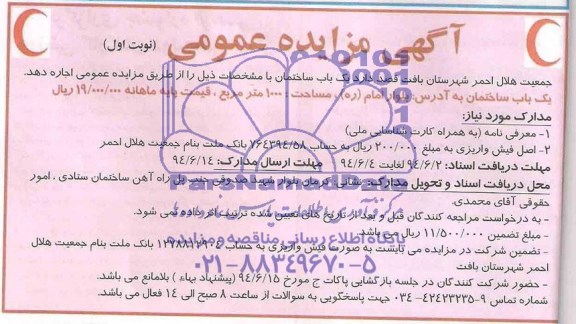 آگهی مزایده عمومی (نوبت اول)
جمعیت هلال احمر شهرستان بافت قصد دارد یک باب ساختمان با مشخصات ذیل را از طریق مزایده عمومی اجاره دهد.
یک باب ساختمان به آدرس: بلوار امام (ره) ، مساحت : ۱۰۰۰ متر مربع ، قیمت پایه ماهانه ۱۹/۰۰۰/۰۰۰ ریال
مدارک مورد نیاز:
۱- معرفی نامه (به همراه کارت شناسایی ملی)
۲- اصل فیش واریزی به مبلغ ۲۰۰/۰۰۰ ریال به حساب ۷۶۴۳۹۴/۵۸ بانک ملت بنام جمعیت هلال احمر
مهلت دریافت اسناد: ۹۴/۶/۲ لغایت ۹۴/۶/۴ مهلت ارسال مدارک: ۹۴/۶/۱۴
محل دریافت اسناد و تحویل مدارک: نشانی: کرمان بلوار شهید صدوقی جنب پل راه آهن ساختمان ستادی ، امور
حقوقی آقای محمدی.
- به درخواست مراجعه کنندگان قبل و بعد از تاریخ های تعیین شده ترتیب اثر داده نمی شود.
- مبلغ تضمین ۱۱/۵۰۰/۰۰۰ ریال می باشد.
- تضمین شرکت در مزایده می بایست به صورت فیش واریزی به حساب بانک ملت بنام جمعیت هلال
احمر شهرستان بافت
- حضور شرکت کنندگان در جلسه بازگشایی پاکات ج مورخ ۹۴/۶/۱۵ (پیشنهاد بهاء ) بلامانع می باشد.
شماره تماس ۹-۴۲۴۲۳۲۳۵-۰۳۴ جهت پاسخگویی به سوالات از ساعت ۸ صبح الی ۱۴ فعال می باشد.
ParsNamadData
پایگاه اطلاع رسانی مناقصه و مزایده
۰۲۱-۸۸۳۴۹۶۷۰-۵